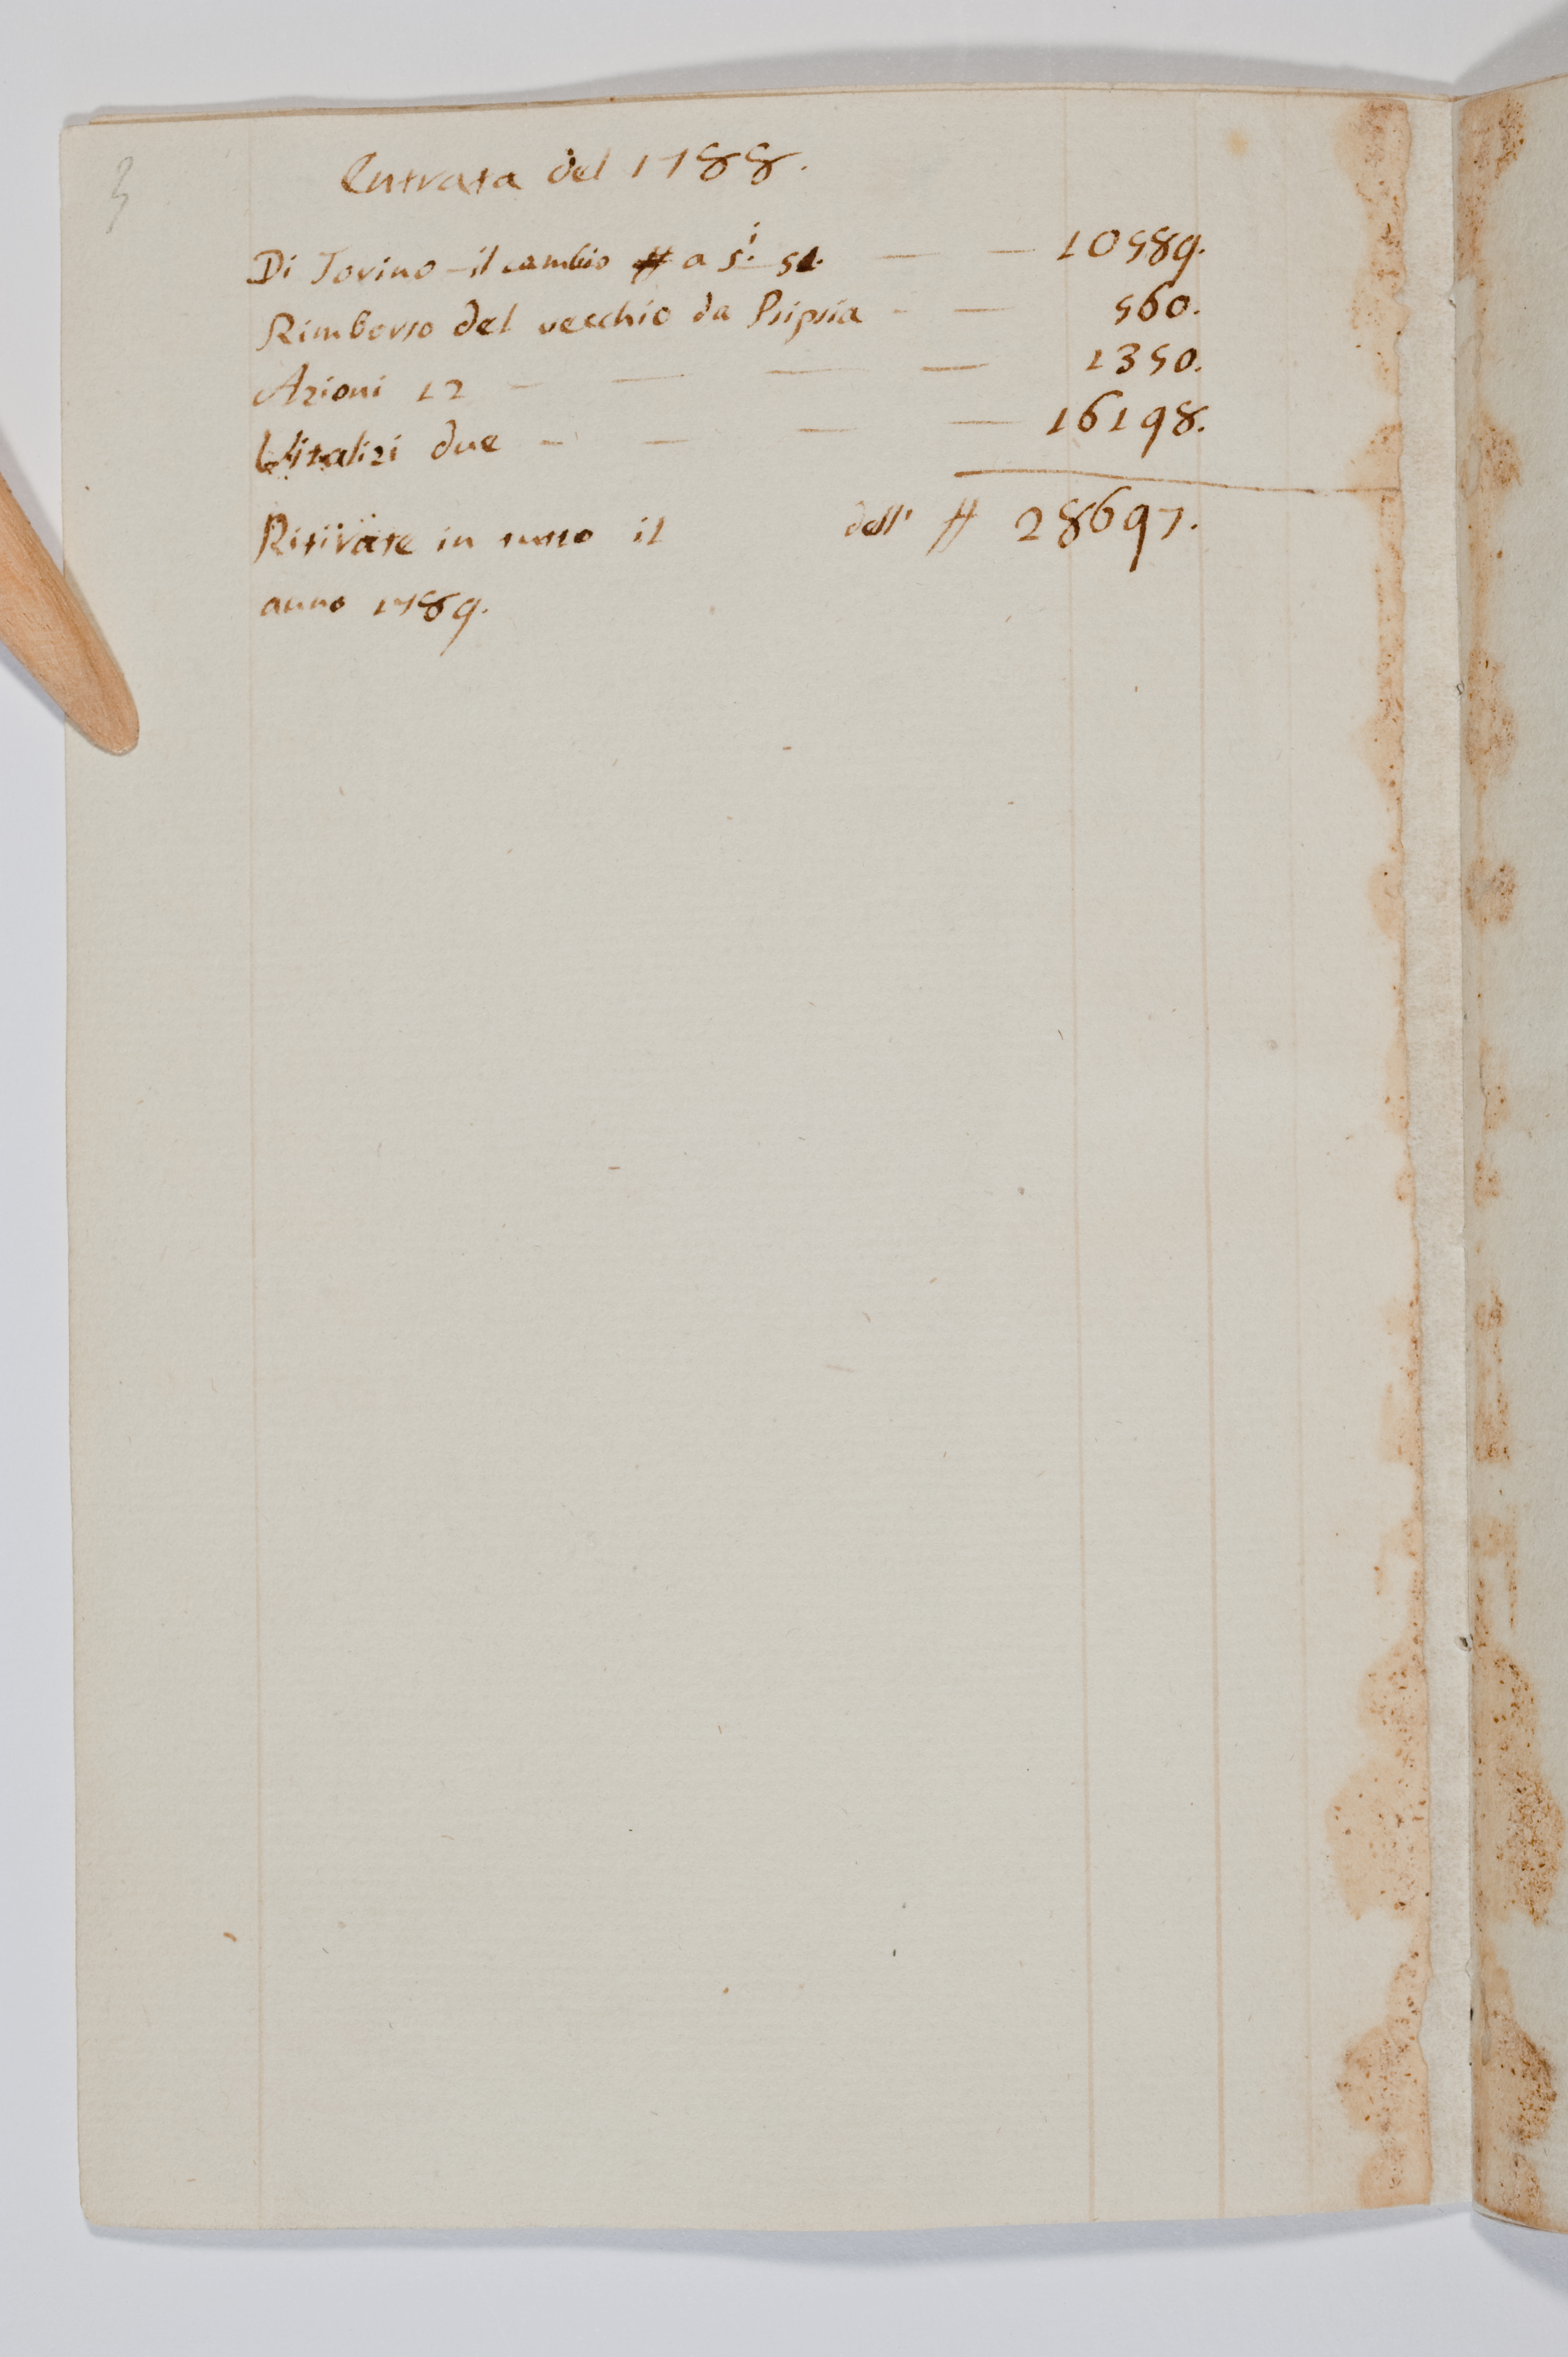 3
Entrata del 1788.
Di Torino - il cambio # a s.i 51. — — 10589.
Rimborso del vecchio da Psipsia - — 560.
Azioni 12 - — — — 1350.
Vitalizi due - — — — 16198.
Ritirate in tutto il dell' # 28697.
anno 1789.